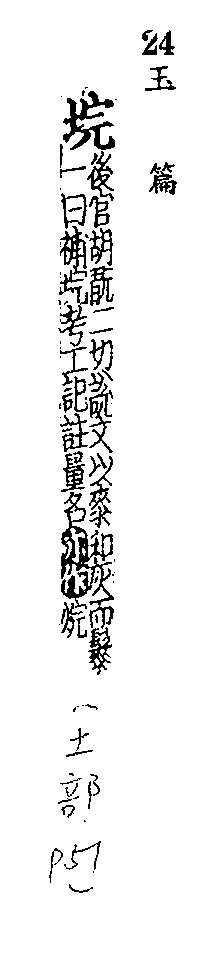 24
玉篇
垸
後官胡翫二切說文以桼和灰而髹
一曰補垸考工記註量名亦作㿪
(土部
P51)